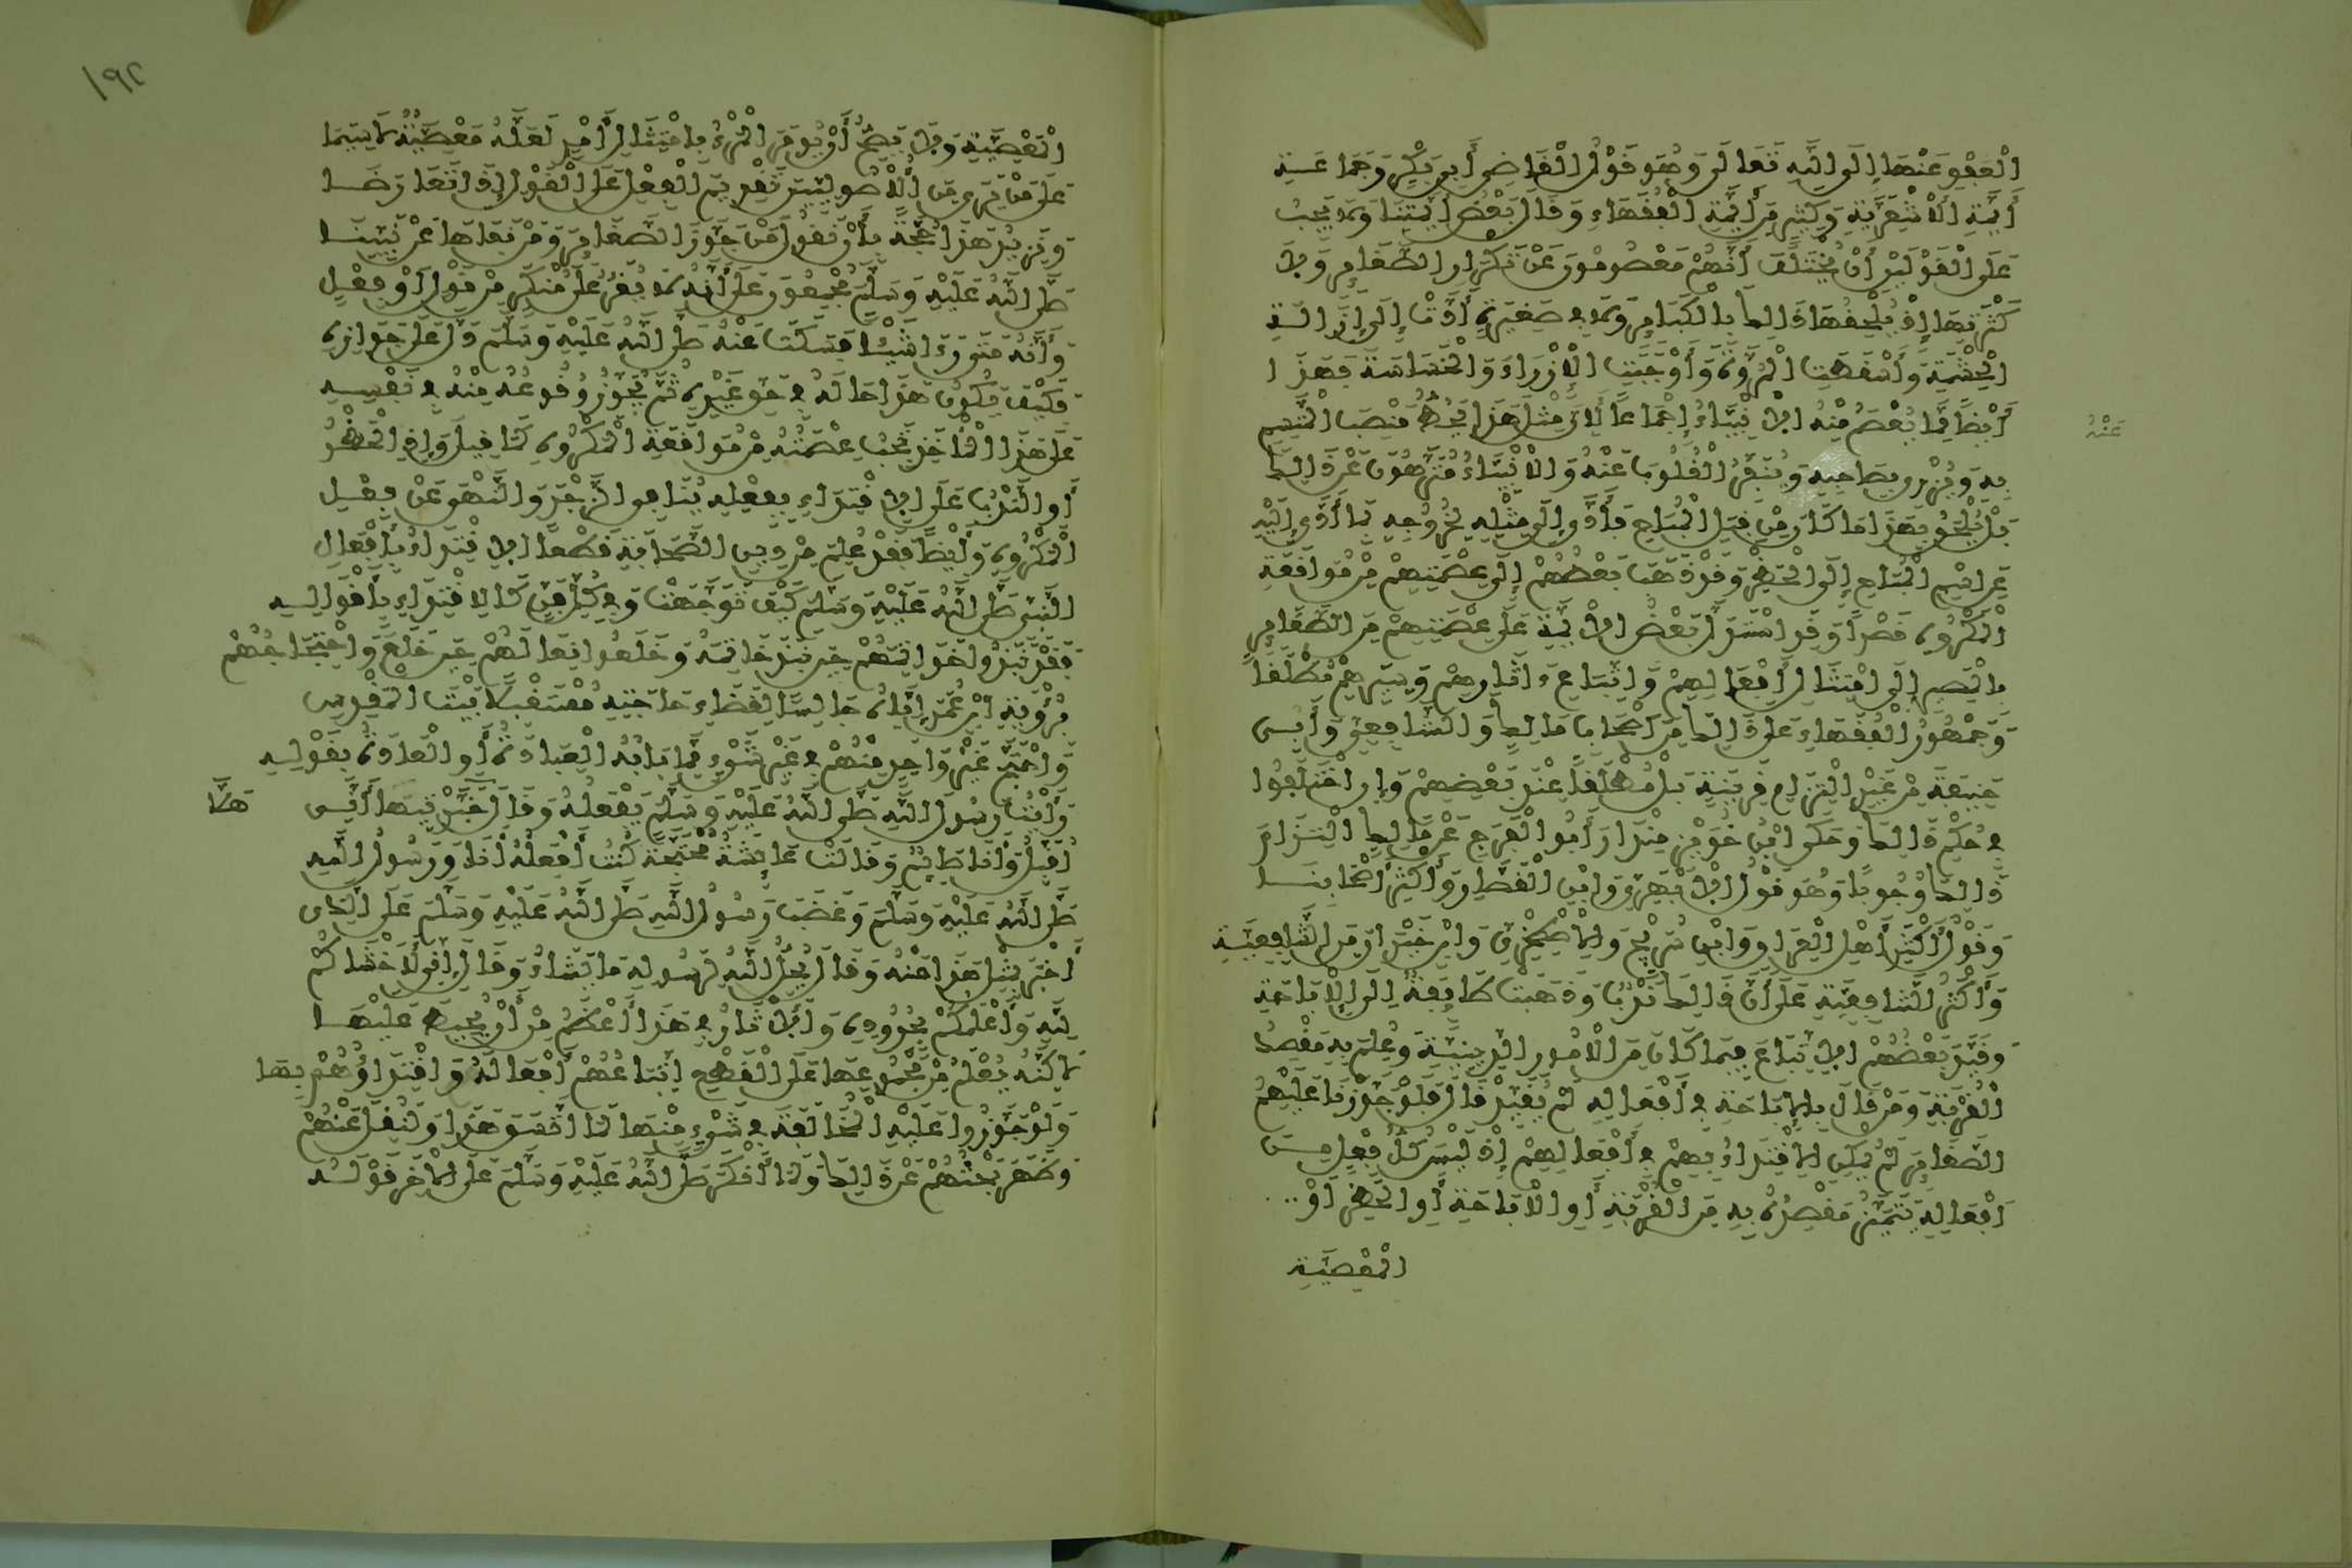 العفو عنها إلى الله تعالى وهو قول القاضي أبي بكر وجماعة
أئمة الأشعرية وكثير من أئمة الفقهاء وقال بعض أئمتنا ولا يجب
على القولين أن يختلف أنهم معصومون عن تكرار الصغائر ولا
كثرتها إذ يلحقها ذلك بالكبائر ولا في صغيرة أدت إلى إزالة
الحشمة وأسقطت المروة وأوجبت الإزراء والخساسة فهذا
أيضا مما يعصم منه الأنبياء إجماعا لأن مثل هذا يحط منصب المتسم
به ويزري بصاحبه وينفر القلوب عنه والأنبياء منزهون عن ذلك
عنه
بل يلحق بهذا ما كان من قبيل المباح فأدى إلى مثله لخروجه بما أدى إليه
عن اسم المباح إلى الحظر وقد ذهب بعضهم إلى عصمتهم من مواقعة
المكروه قصدا وقد استدل بعض الأئمة على عصمتهم من الصغائر
بالمصير إلى امتثال أفعالهم واتباع ءاثارهم وسيرهم مطلقا
وجمهور الفقهاء على ذلك من أصحاب مالك والشافعي وأبي
حنيفة من غير التزام قرينة بل مطلقا عند بعضهم وإن اختلفوا
في حكم ذلك وحكى ابن خويز منداد وأبو الفرج عن مالك التزام
ذلك وجوبا وهو قول الأبهري وابن القصار وأكثر أصحابنا
وقول أكثر أهل العراق وابن سريج والإصطخري وابن خيران من الشافعية
وأكثر الشافعية على أن ذلك ندب وذهبت طائفة إلى الإباحة
وقيد بعضهم الاتباع فيما كان من الأمور الدينية وعلم به مقصد
القربة ومن قال بالإباحة في أفعاله لم يقيد قال فلو جوزنا عليهم
الصغائر لم يمكن الاقتداء بهم في أفعالهم إذ ليس كل فعل من
أفعاله يتميز مقصده به من القربة أو الإباحة أو الحظر أو
المعصية
١٩٢
المعصية ولا يصح أن يؤمر المرء بامتثال أمر لعله معصية لا سيما
على من يرى من الأصوليين تقديم الفعل على القول إذا تعارضا
ونزيد هذا حجة بأن نقول من جوز الصغائر ومن نفاها عن نبينا
صلى الله عليه وسلم مجمعون على أنه لا يقر على منكر من قول أو فعل
وأنه متى رءا شيئا فسكت عنه صلى الله عليه وسلم دل على جوازه
فكيف يكون هذا حاله في حق غيره ثم يجوز وقوعه منه في نفسه
على هذا المأخذ تجب عصمته من مواقعة المكروه كما قيل وإذ الحظر
أو الندب على الاقتداء بفعله ينافي الزجر والنهي عن فعل
المكروه وأيضا فقد علم من دين الصحابة قطعا الاقتداء بأفعال
النبي صلى الله عليه وسلم كيف توجهت وفي كل فن كالاقتداء بأقواله
فقد نبذوا خواتيمهم حين نبذ خاتمه وخلعوا نعالهم حين خلع واحتجاجهم
برؤية ابن عمر إياه جالسا لقضاء حاجته مستقبلا بيت المقدس
واحتج غير واحد منهم في غير شيء مما بابه العبادة أو العادة بقوله
رأيت رسول الله صلى الله عليه وسلم يفعله وقال خبرتيها أني
هلا
أقبل وأنا صائم وقالت عائشة محتجة كنت أفعله أنا ورسول الله
صلى الله عليه وسلم وغضب رسول الله صلى الله عليه وسلم على الذي
أخبر بمثل هذا عنه وقال يحل الله لرسوله ما يشاء وقال إني لأخشاكم
لله وأعلمكم بحدوده والآثار في هذا أعظم من أن يحيط عليها
لاكنه يعلم من مجموعها على القطع اتباعهم أفعاله واقتداؤهم بها
ولو جوزوا عليه المخالفة في شيء منها لما اتسق هذا ولنقل عنهم
وظهر بحثهم عن ذلك ولما أنكر صلى الله عليه وسلم على الآخر قوله